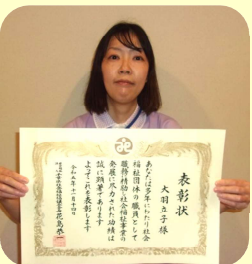 表彰状
大羽立子様
あなたは多年にわたり社会
福祉団体の職員として
職務精励し社会福祉事業の
発展に尽力された功績は
誠に顕著であります
よってこれを表彰します
令和五年十一月十四日